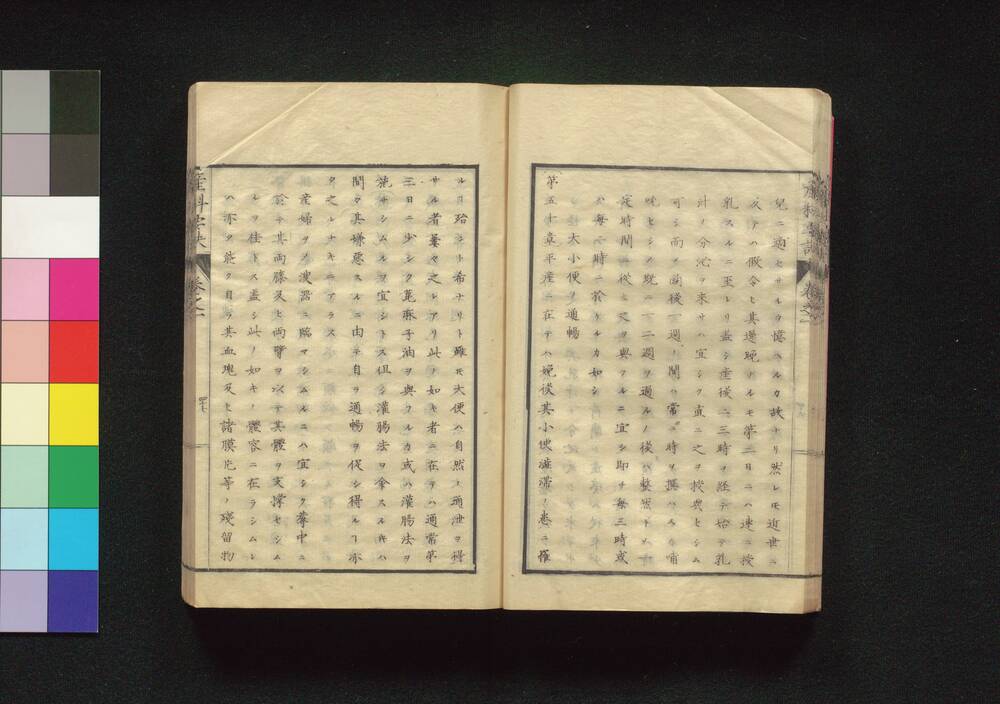 兒ニ適セサルヲ憶ヘルカ故ナリ然レ𪜈近世ニ
及テハ假令ヒ其遅晩ナルモ第二日ニハ速ニ授
乳スルニ至レリ蓋シ産後二三時ヲ経テ始テ乳
汁ノ分泌ヲ来サハ宜シク直ニ之ヲ授與セシム
可シ而ヲ前後一週ノ間ハ常ニ時ヲ撰ハス哺
セシメ既ニ一二週ヲ過ルノ後ハ整然トメ
定時間ニ從ヒ之ヲ與フルニ宜シ即チ毎三時或
ハ毎 時ニ於トルカ如シ
大小便ノ通暢
第五十章平産ニ在テハ娩後其小便淋滞ノ患ニ罹
ルヿ殆ント希ナリト雖𪜈大便ハ自然ノ通泄ヲ得
サル者婁々之レアリ此ノ如キ者ニ在テハ通常第
三日ニ少シク蓖麻子油ヲ與フルカ或ハ灌腸法ヲ
施サシムルヲ宜シトス但シ灌腸法ヲ命スルキハ
間々其嫌惡スルニ由テ自ラ通暢ヲ促シ得ルヿ亦
タ之レナキニアラス
産婦ヲメ溲器ニ臨マシムルニハ宜シク蓐中ニ
於テ其両膝及ヒ両臂ヲ以テ其體ヲ支撑セシム
ルヲ佳トス蓋シ此ノ如キノ體容ニ在ラシムレ
ハ亦タ能ク自ラ其血塊及ヒ諸膜片等ノ殘留物
産科
卷之